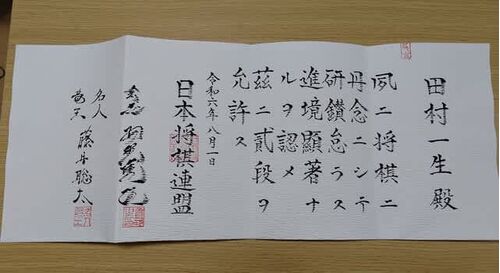 田村一生殿
夙ニ将棋ニ
丹念ニシテ
研鑚怠ラス
進境顕著ナ
ルヲ認メ
茲ニ貳段ヲ
允許ス
令和六年八月一日
日本将棋連盟
名人
藤井聡太